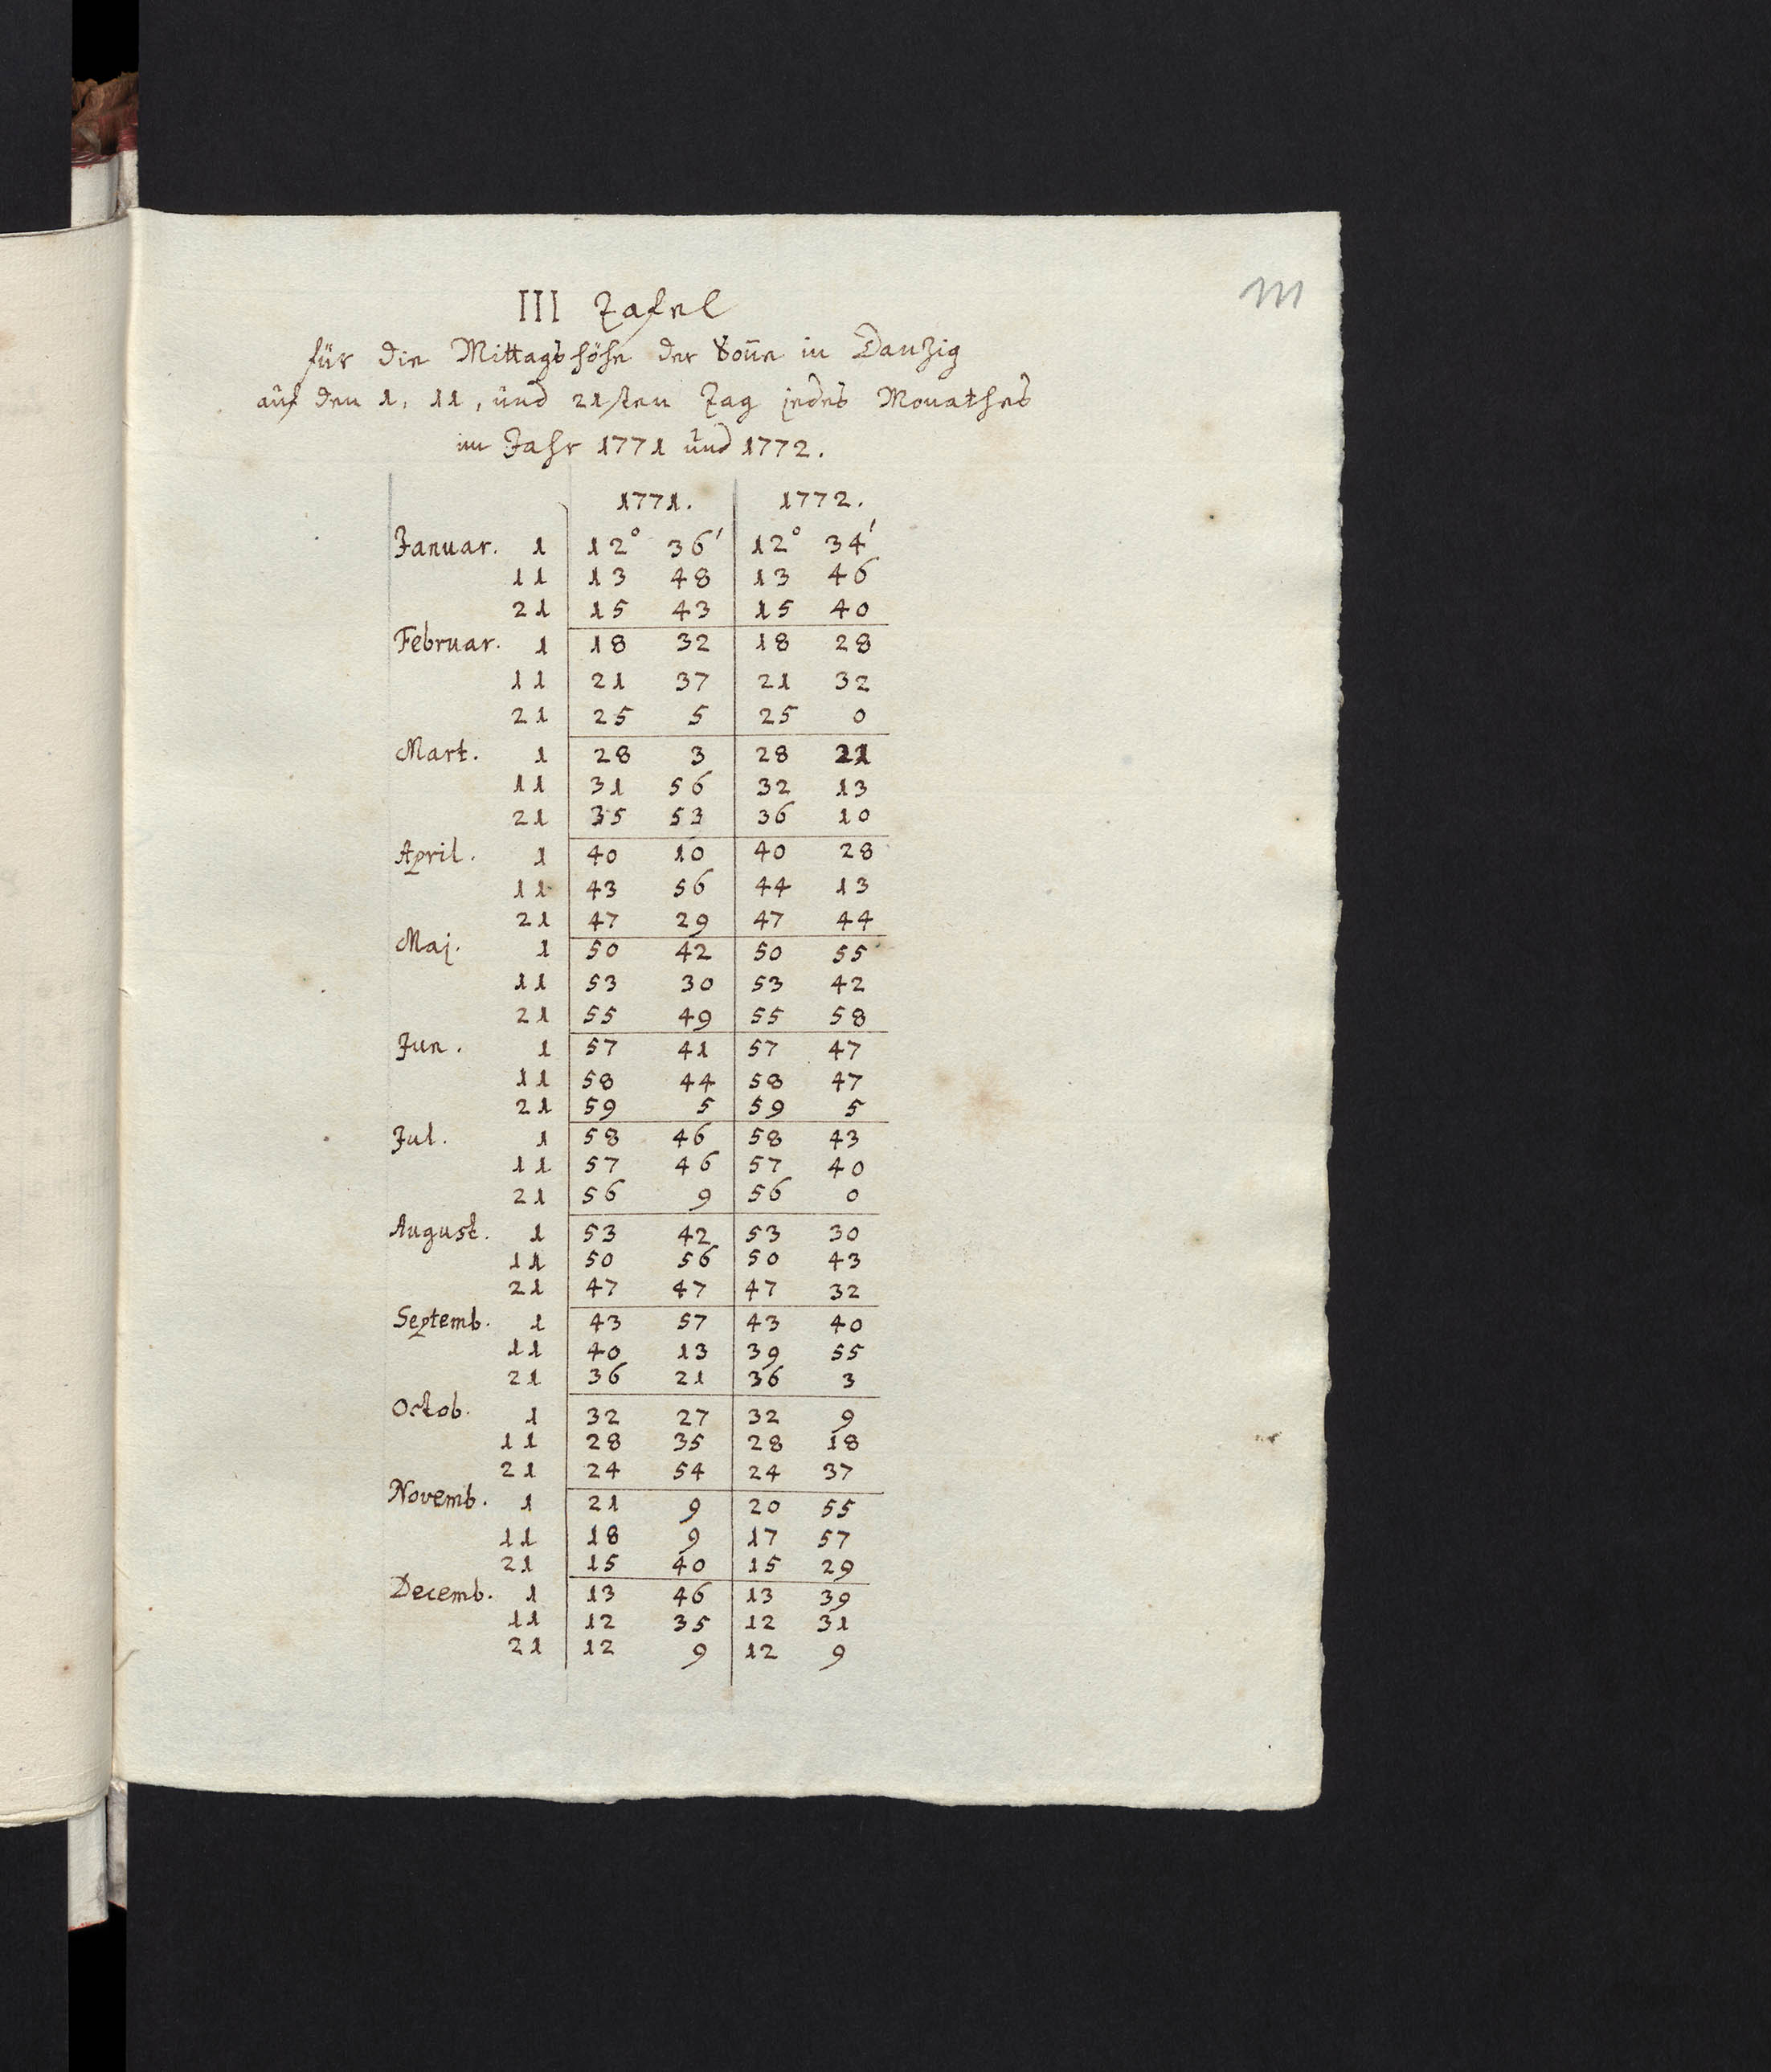 III Tafel
für die Mittagshöhe der Soñe in Danzig
auf den 1, 11, und 21sten Tag jedes Monathes
im Jahr 1771 und 1772.
1771. 1772.
Januar. 1 12° 36' 12° 34'
11 13 48 13 46
21 15 43 15 40
Februar. 1 18 32 18 28
11 21 37 21 32
21 25 5 25 0
Mart. 1 28 3 28 21
11 31 56 32 13
21 35 53 36 10
April. 1 40 10 40 28
11 43 56 44 13
21 47 29 47 44
Maj. 1 50 42 50 55
11 53 30 53 42
21 55 49 55 58
Jun. 1 57 41 57 47
11 58 44 58 47
21 59 5 59 5
Jul. 1 58 46 58 43
11 57 46 57 40
21 56 9 56 0
August. 1 53 42 53 30
11 50 56 50 43
21 47 47 47 32
Septemb. 1 43 57 43 40
11 40 13 39 55
21 36 21 36 3
Octob. 1 32 27 32 9
11 28 35 28 18
21 24 54 24 37
Novemb. 1 21 9 20 55
11 18 9 17 57
21 15 40 15 29
Decemb. 1 13 46 13 39
11 12 35 12 31
21 12 9 12 9